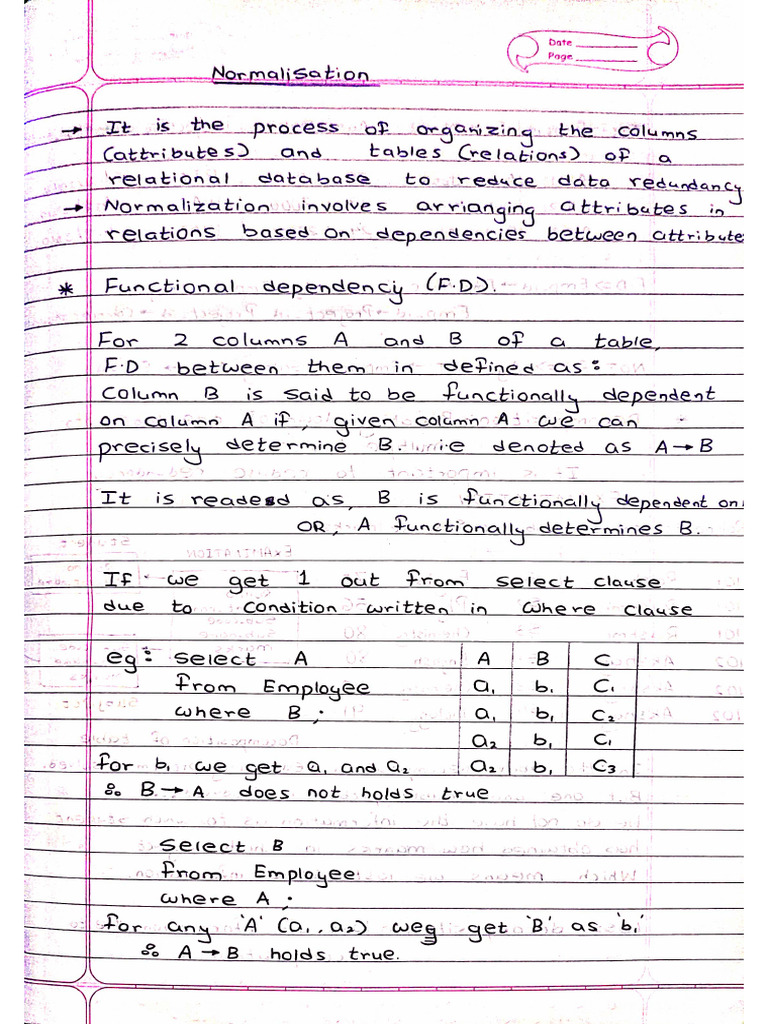 Date
Page
Normalisation
→ It is the process of organizing the columns
(attributes) and tables (relations) of a
relational database to reduce data redundancy
→ Normalization involves arrianging attributes in
relations based on dependencies between attribute
* Functional dependency (F.D).
For 2 columns A and B of a table,
F.D between them in defined as:
Column B is said to be functionally dependent
on column A if, given column A we can
precisely determine B. i.e denoted as A→B
It is readesd as, B is functionally dependent on
OR, A functionally determines B.
If we get 1 out from select clause
due to condition written in where clause
eg: select A
from Employee
where B;
A B C
a₁ b₁ C₁
a₁ b₁ C₂
a₂ b₁ C₁
a₂ b₁ C₃
for b₁ we get a₁ and a₂
∴ B → A does not holds true
select B
from Employee
where A;
for any 'A' (a₁, a₂) weg get 'B' as 'b₁'
∴ A → B holds true.